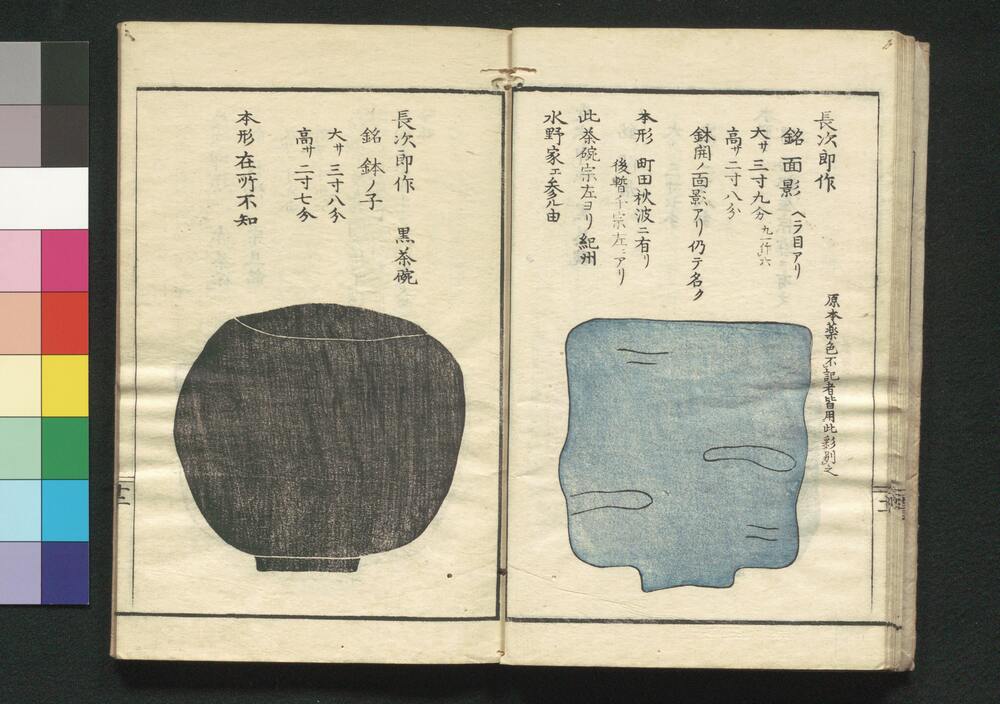 長次郎作
銘 面影 ヘラ目アリ
大サ 三寸九分
高サ 二寸八分
鉢開ノ面影アリ仍テ名ク
本形 町田秋波ニ有リ
後暫ク千宗左ニアリ
此茶碗宗左ヨリ紀州
水野家エ参ル由
原本薬色不記者皆用此彩別之
長次郎作 黒茶碗
銘 鉢ノ子
大サ 三寸八分
高サ 二寸七分
本形在所不知
十二